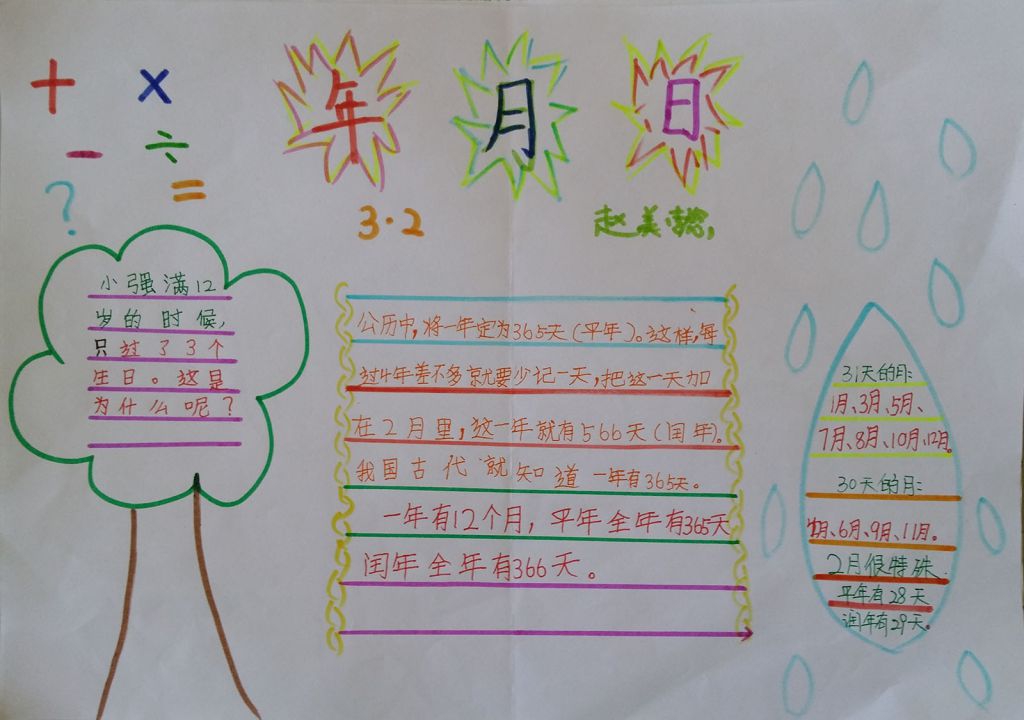 + ×
- ÷
? =
年 月 日
3·2
赵美
小强满12
岁的时候,
只过了3个
生日。这是
为什么呢?
公历中,将一年定为365天(平年)。这样,每
过4年差不多就要少记一天,把这一天加
在2月里,这一年就有566天(闰年)。
我国古代就知道一年有365天。
一年有12个月,平年全年有365天
闰年全年有366天。
31天的月:
1月、3月、5月、
7月、8月、10月、12月。
30天的月:
4月、6月、9月、11月。
2月很特殊.
平年有28天
润年有29天。